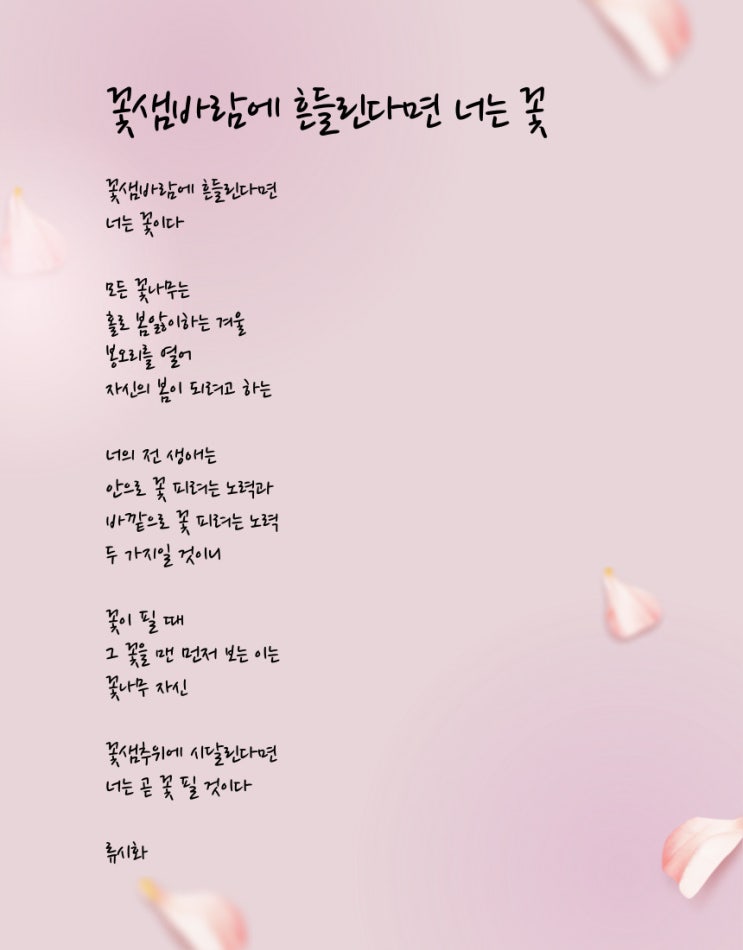 꽃샘바람에 흔들린다면 너는 꽃
꽃샘바람에 흔들린다면
너는 꽃이다
모든 꽃나무는
홀로 봄앓이하는 겨울
봉오리를 열어
자신의 봄이 되려고 하는
너의 전 생애는
안으로 꽃 피려는 노력과
바깥으로 꽃 피려는 노력
두 가지일 것이니
꽃이 필 때
그 꽃을 맨 먼저 보는 이는
꽃나무 자신
꽃샘추위에 시달린다면
너는 곧 꽃 필 것이다
류시화